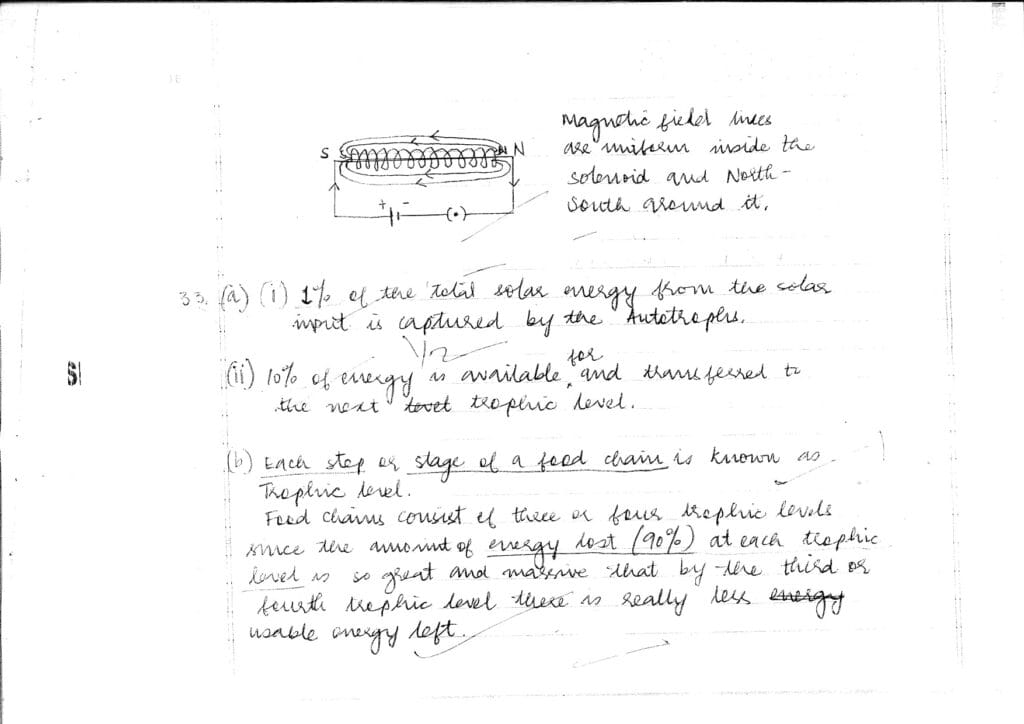 Magnetic field lines
are uniform inside the
S N
solenoid and North-
South around it.
+ -
33. (a) (i) 1% of the total solar energy from the solar
input is captured by the Autotrophs.
1/2
for
(ii) 10% of energy is available, and transferred to
the next level trophic level.
(b) Each step or stage of a food chain is known as
Trophic level.
Food chains consist of three or four trophic levels
since the amount of energy lost (90%) at each trophic
level is so great and massive that by the third or
fourth trophic level there is really less energy
usable energy left.